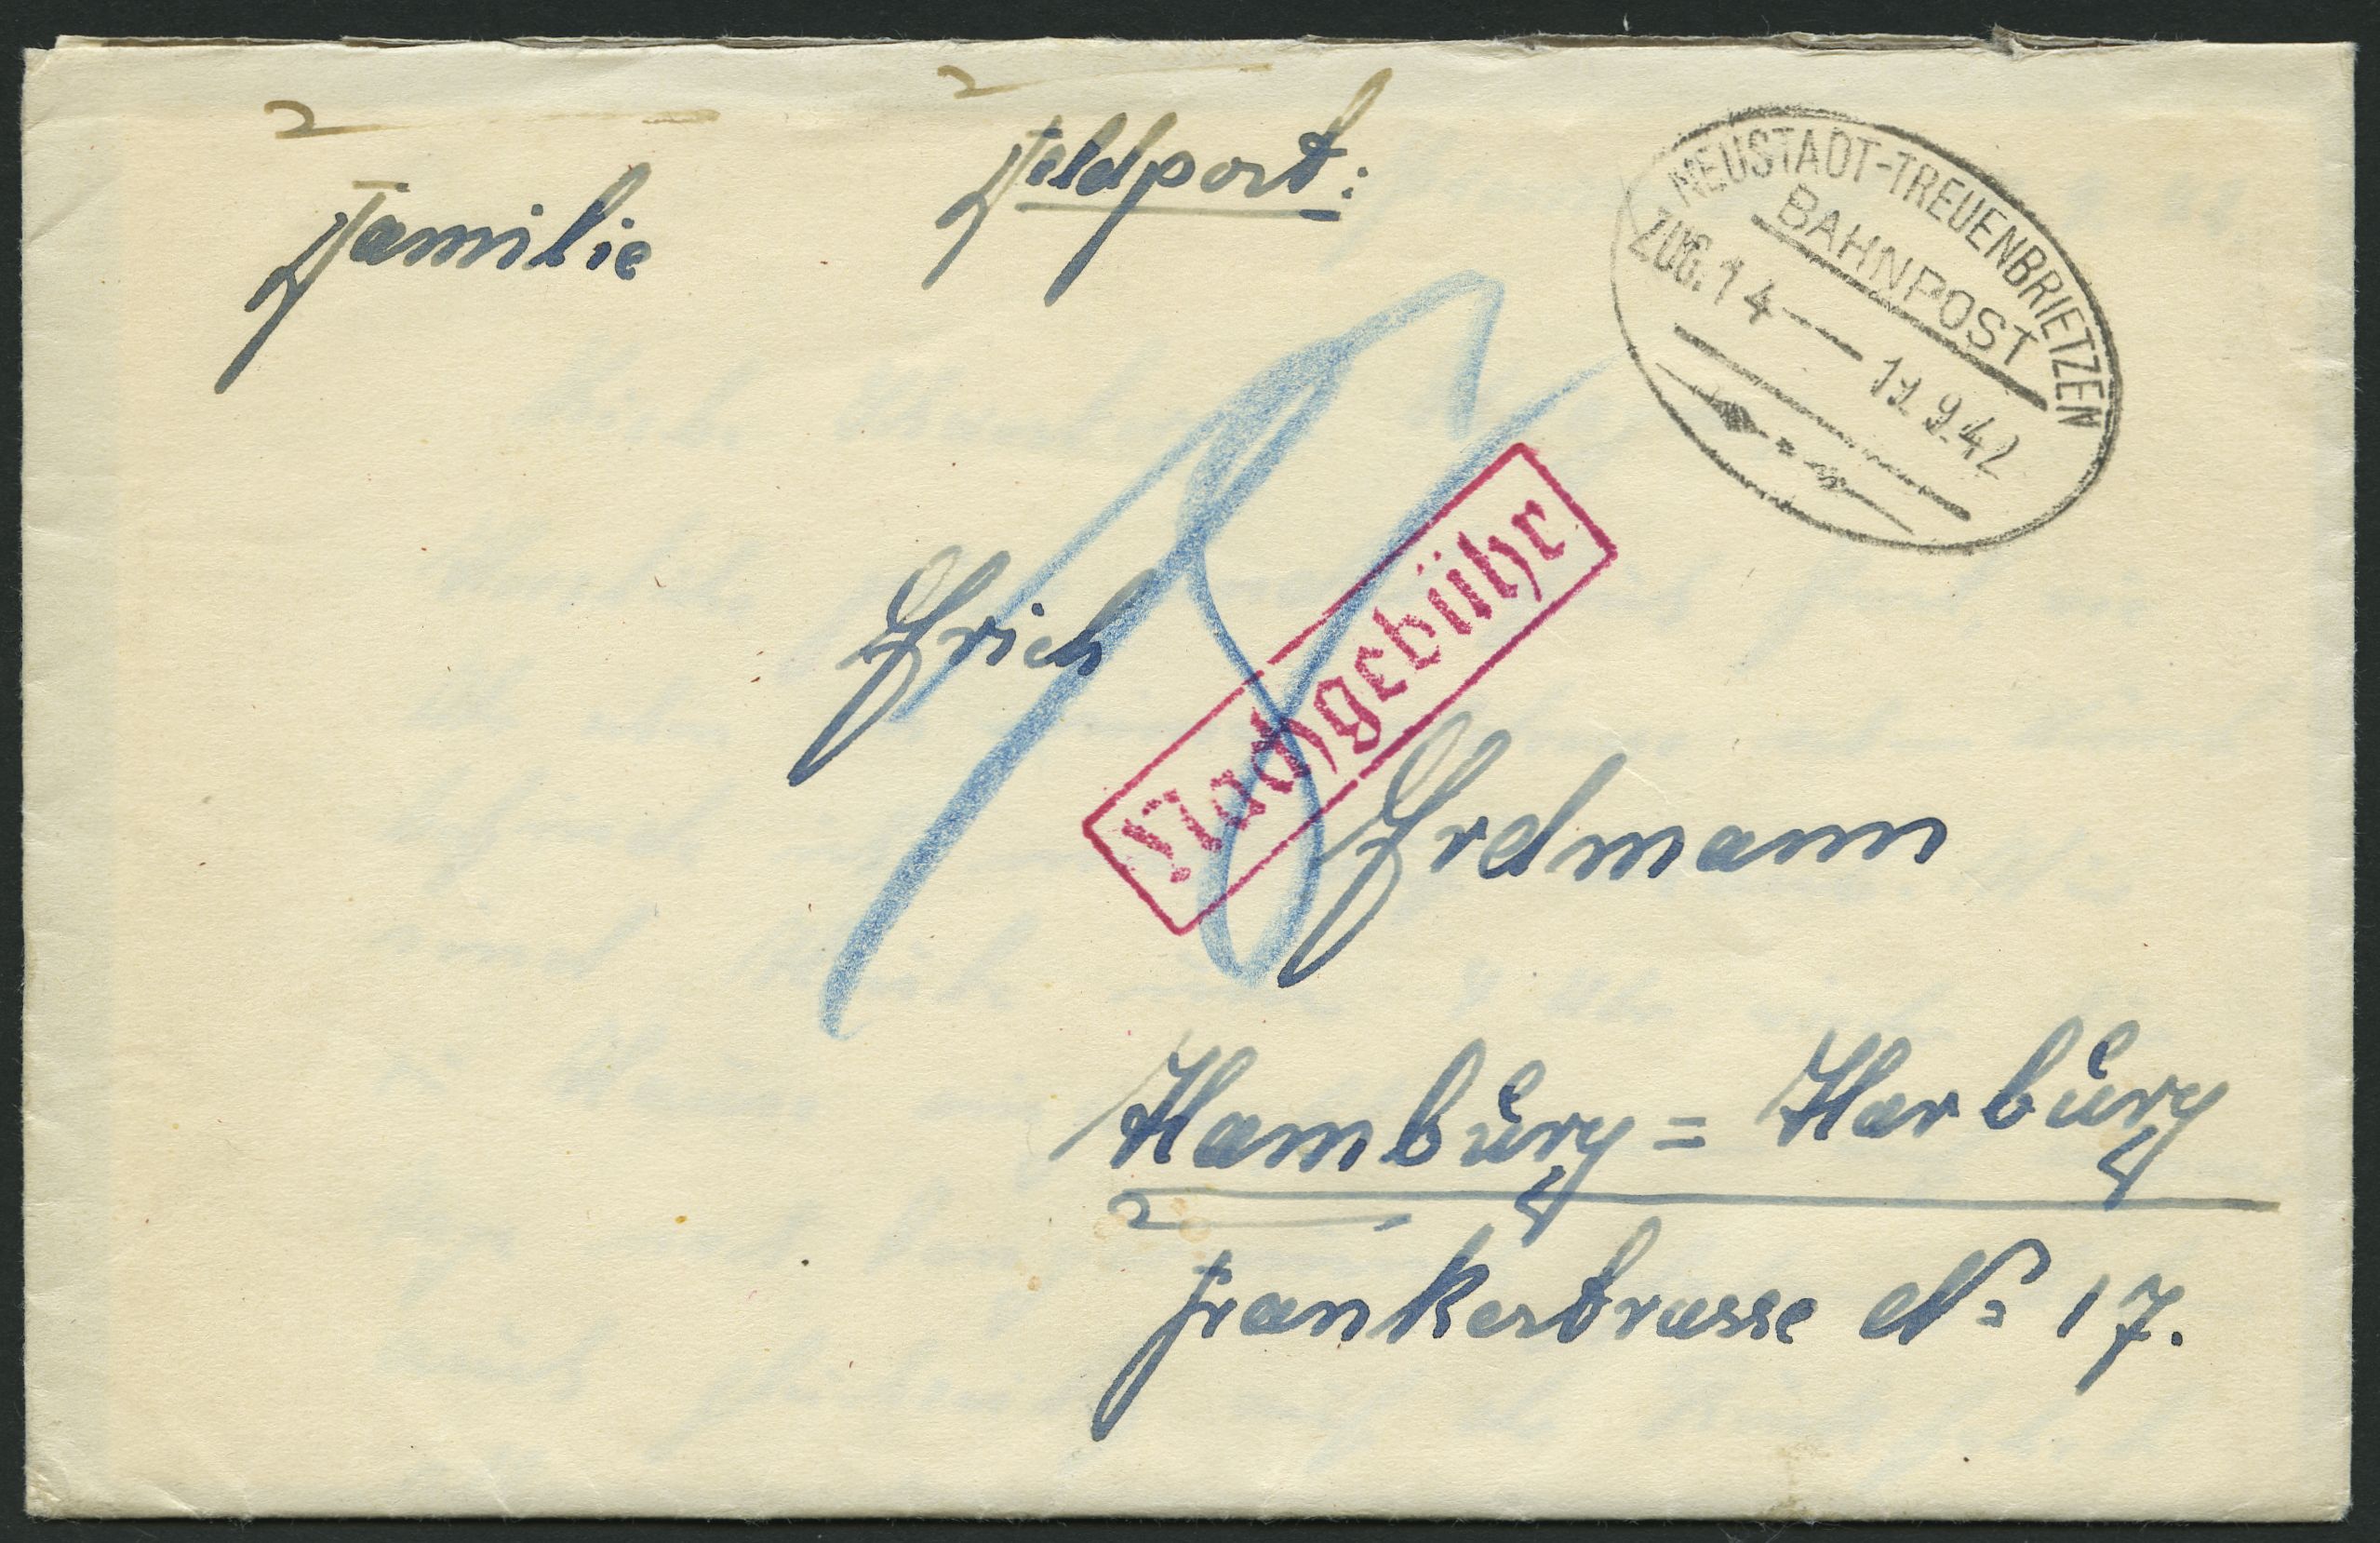 Feldpost:
Familie
NEUSTADT-TREUENBRIETZEN
BAHNPOST
ZUG.14
9.42
18
Nachgebühr
Erich
Erdmann
Hamburg = Harburg
Frankestrasse No 17.